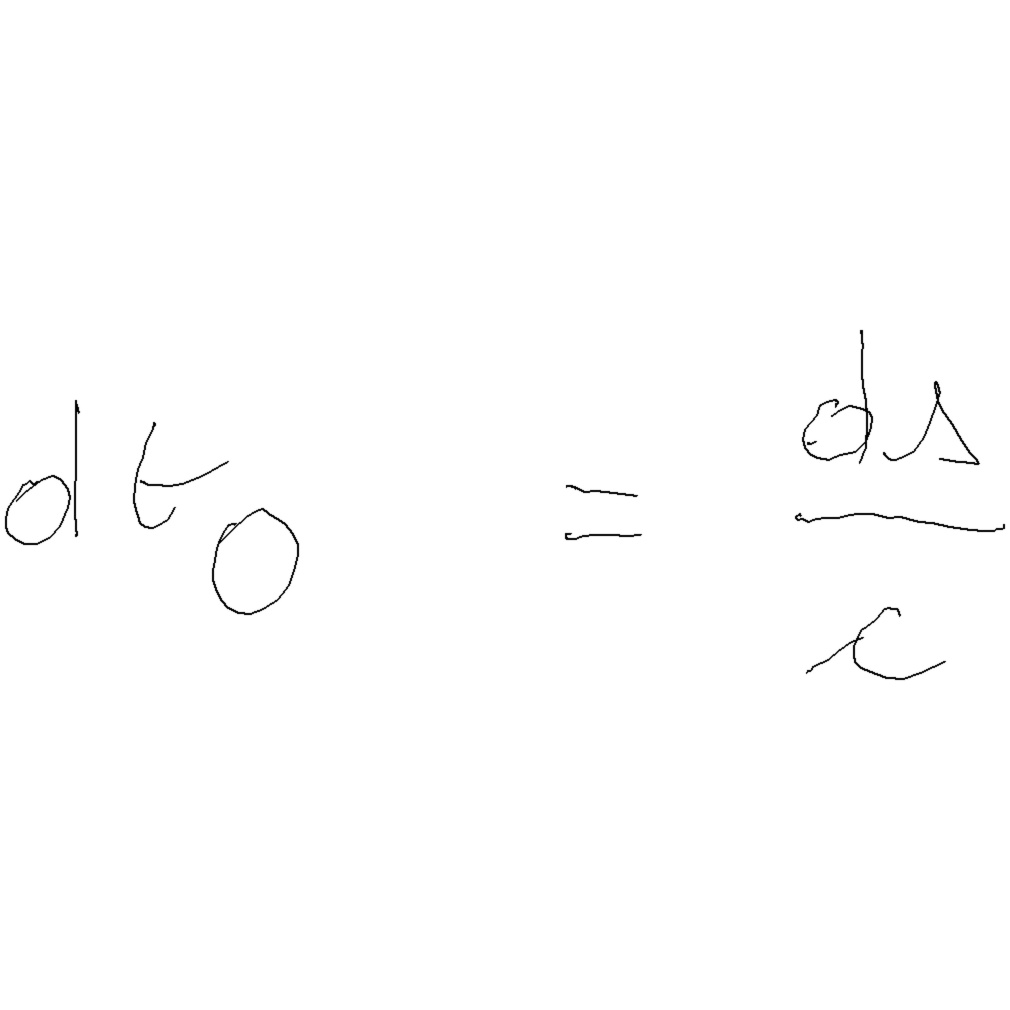 dt₀ = ds/c